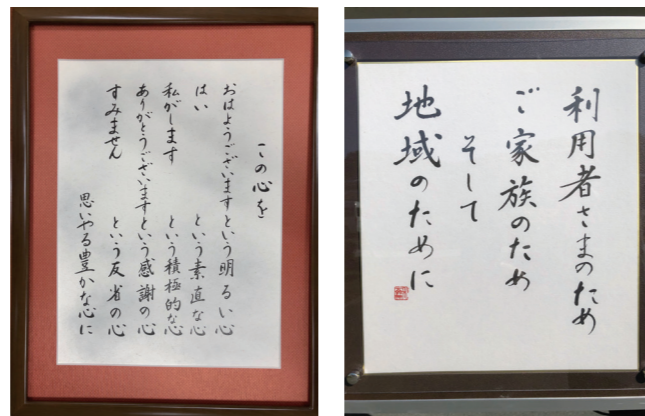 この心を
おはようございますという明るい心
はい という素直な心
私がします という積極的な心
ありがとうございますという感謝の心
すみません という反省の心
思いやる豊かな心に
利用者さまのため
ご家族のため
そして
地域のために